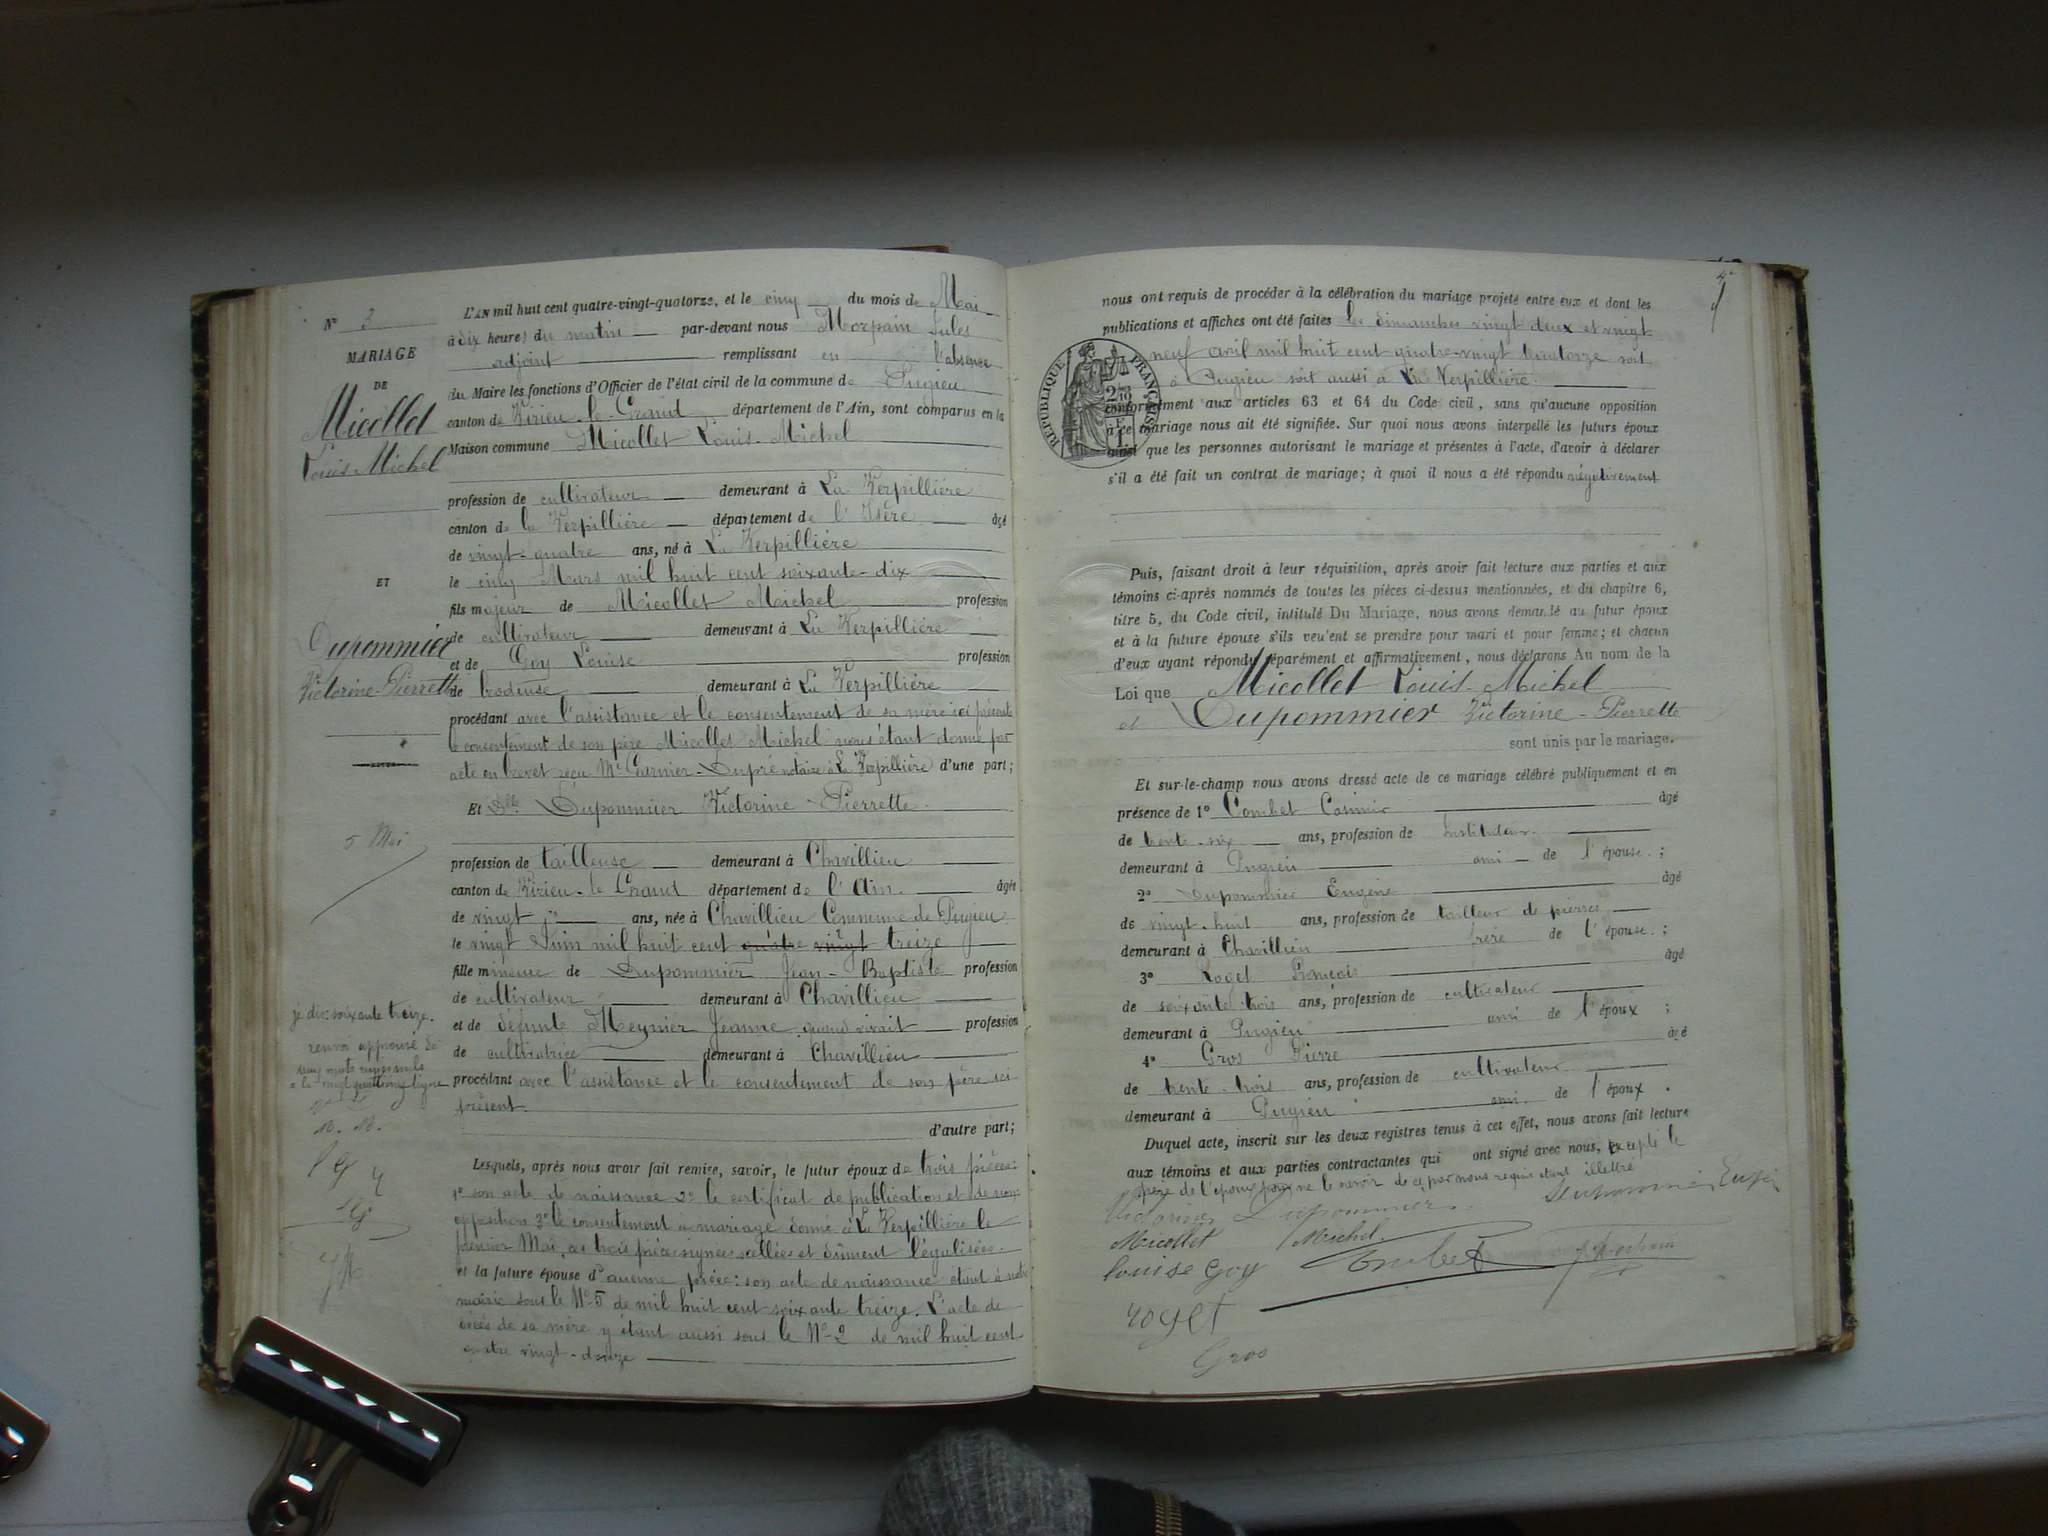 N° 3
MARIAGE
DE
Micollet
Louis Michel
ET
Dupommier
Victorine-Pierrette
5 Mai
je dis: soixante treize.
renvoi approuvé de
M. M.
L G
L'AN mil huit cent quatre-vingt-quatorze, et le cinq du mois de Mai
à dix heures du matin par-devant nous Morpain Jules
adjoint remplissant en l'absence
du Maire les fonctions d'Officier de l'état civil de la commune de Pugieu
canton de Virieu-le-Grand département de l'Ain, sont comparus en la
Maison commune Micollet Louis-Michel
profession de cultivateur demeurant à La Verpillière
canton de la Verpillière département de l'Isère âgé
de vingt-quatre ans, né à La Verpillière
le cinq Mars mil huit cent soixante-dix
fils majeur de Micollet Michel profession
de cultivateur demeurant à La Verpillière
et de Goy Louise profession
de brodeuse demeurant à La Verpillière
procédant avec l'assistance et le consentement de sa mère ici présente
le consentement de son père Micollet Michel nous étant donné par
acte en brevet reçu Me Garnier-Dupré notaire à La Verpillière d'une part;
Et Dlle Dupommier Victorine-Pierrette
profession de tailleuse demeurant à Chavillieu
canton de Virieu-le-Grand département de l'Ain. âgée
de vingt ans, née à Chavillieu Commune de Pugieu
le vingt Juin mil huit cent quatre vingt treize
fille mineure de Dupommier Jean-Baptiste profession
de cultivateur demeurant à Chavillieu
et de défunte Meynier Jeanne quand vivait profession
de cultivatrice demeurant à Chavillieu
procédant avec l'assistance et le consentement de son père ici
présent.
d'autre part;
Lesquels, après nous avoir fait remise, savoir, le futur époux de trois pièces:
1° son acte de naissance 2° le certificat de publication et de non
opposition 3° le consentement à mariage donné à La Verpillière le
premier Mai, ces trois pièces signées scellées et dûment légalisées.
et la future épouse d'aucune pièce: son acte de naissance étant à notre
mairie sous le N° 5 de mil huit cent soixante treize. L'acte de
décès de sa mère y étant aussi sous le N° 2 de mil huit cent
quatre vingt-douze
nous ont requis de procéder à la célébration du mariage projeté entre eux et dont les
publications et affiches ont été faites les dimanches vingt deux et vingt
neuf avril mil huit cent quatre-vingt quatorze soit
à Pugieu soit aussi à La Verpillière.
RÉPUBLIQUE FRANÇAISE
conformément aux articles 63 et 64 du Code civil, sans qu'aucune opposition
à ce mariage nous ait été signifiée. Sur quoi nous avons interpellé les futurs époux
ainsi que les personnes autorisant le mariage et présentes à l'acte, d'avoir à déclarer
s'il a été fait un contrat de mariage; à quoi il nous a été répondu négativement
Puis, faisant droit à leur réquisition, après avoir fait lecture aux parties et aux
témoins ci-après nommés de toutes les pièces ci-dessus mentionnées, et du chapitre 6,
titre 5, du Code civil, intitulé Du Mariage, nous avons demandé au futur époux
et à la future épouse s'ils veulent se prendre pour mari et pour femme; et chacun
d'eux ayant répondu séparément et affirmativement, nous déclarons Au nom de la
Loi que Micollet Louis-Michel
et Dupommier Victorine-Pierrette
sont unis par le mariage.
Et sur-le-champ nous avons dressé acte de ce mariage célébré publiquement et en
présence de 1° Combet Casimir âgé
de trente-six ans, profession de Instituteur
demeurant à Pugieu ami de l'épouse;
2° Dupommier Eugène âgé
de vingt-huit ans, profession de tailleur de pierres
demeurant à Chavillieu frère de l'épouse;
3° Roget François âgé
de soixante-trois ans, profession de cultivateur
demeurant à Pugieu ami de l'époux;
4° Gros Pierre âgé
de trente-trois ans, profession de cultivateur
demeurant à Pugieu ami de l'époux.
Duquel acte, inscrit sur les deux registres tenus à cet effet, nous avons fait lecture
aux témoins et aux parties contractantes qui ont signé avec nous, excepté le
père de l'épouse pour ne le savoir de ce par nous requis étant illettré
Victorine Dupommier Dupommier Eugène
Micollet Michel
Louise Goy Combet J Morpain
roget
Gros